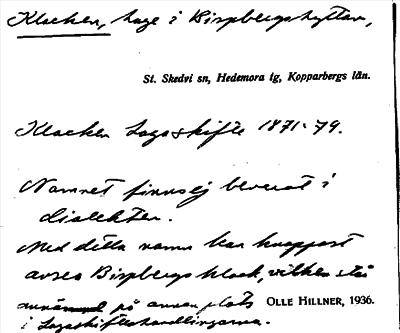 Klacken, hage i Bispbergshyttan,
St. Skedvi sn, Hedemora tg, Kopparbergs län.
Klacken Laga skifte 1871-79.
Namnet finns ej bevarat i
dialekten.
Med detta namn kan knappast
avses Bispbergs klack, vilken står
på annan plats OLLE HILLNER, 1936.
i Lagaskifteshandlingarna.